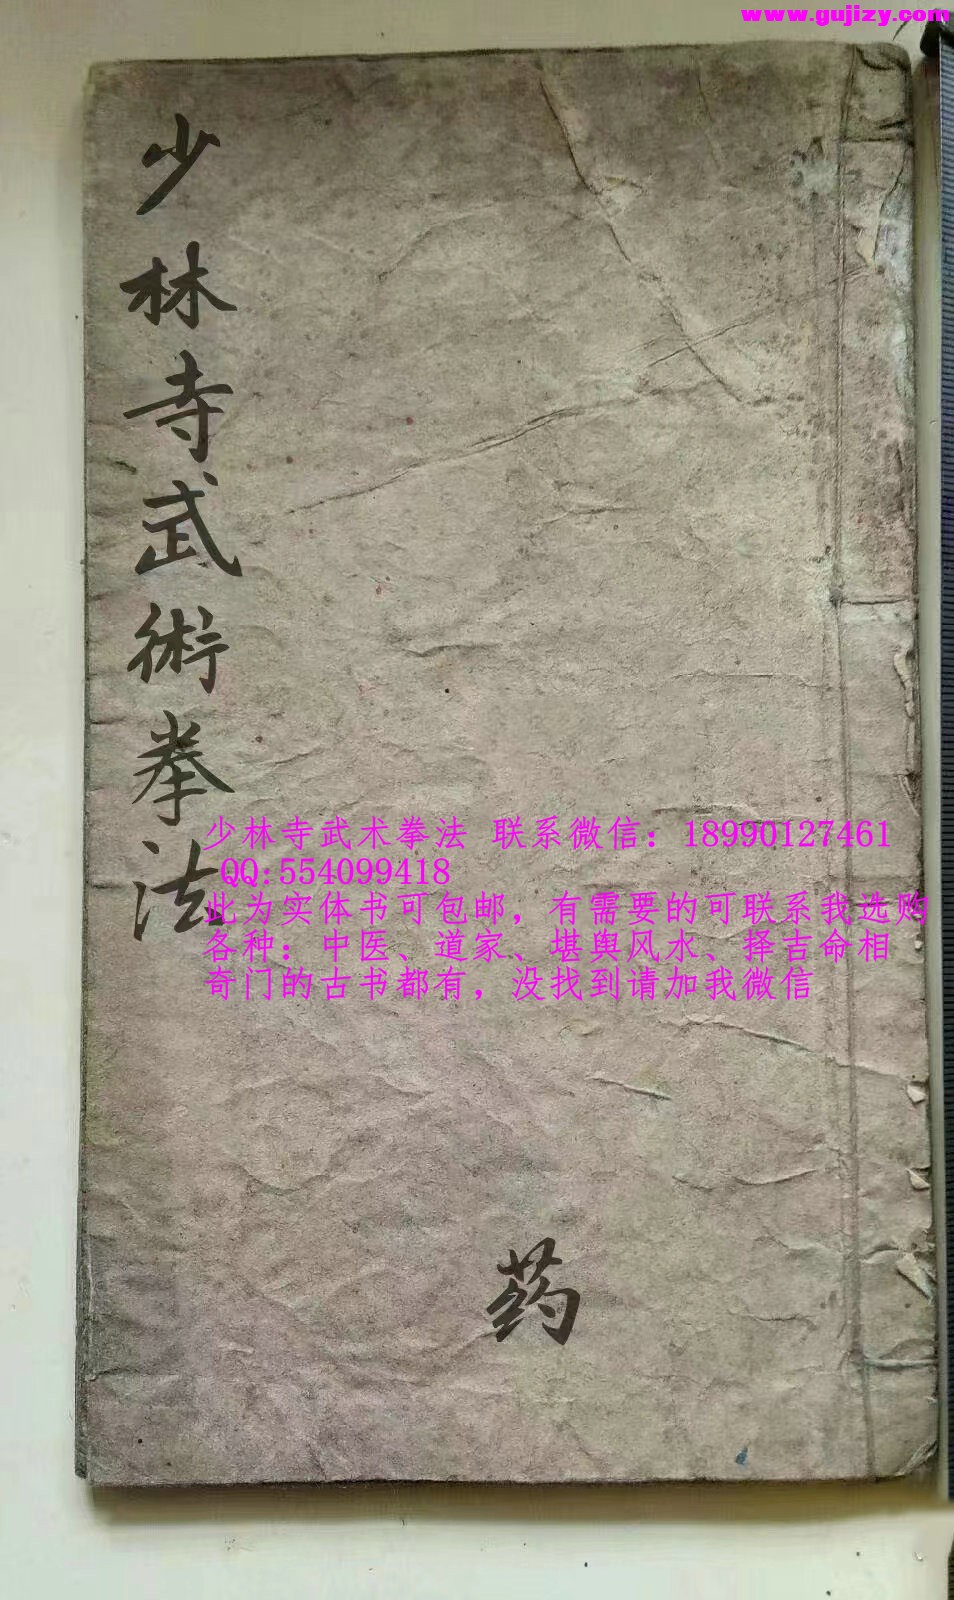 www.gujizy.com
少林寺武術拳法
少林寺武术拳法 联系微信：18990127461
QQ:554099418
此为实体书可包邮，有需要的可联系我选购
各种：中医、道家、堪舆风水、择吉命相
奇门的古书都有，没找到请加我微信
药